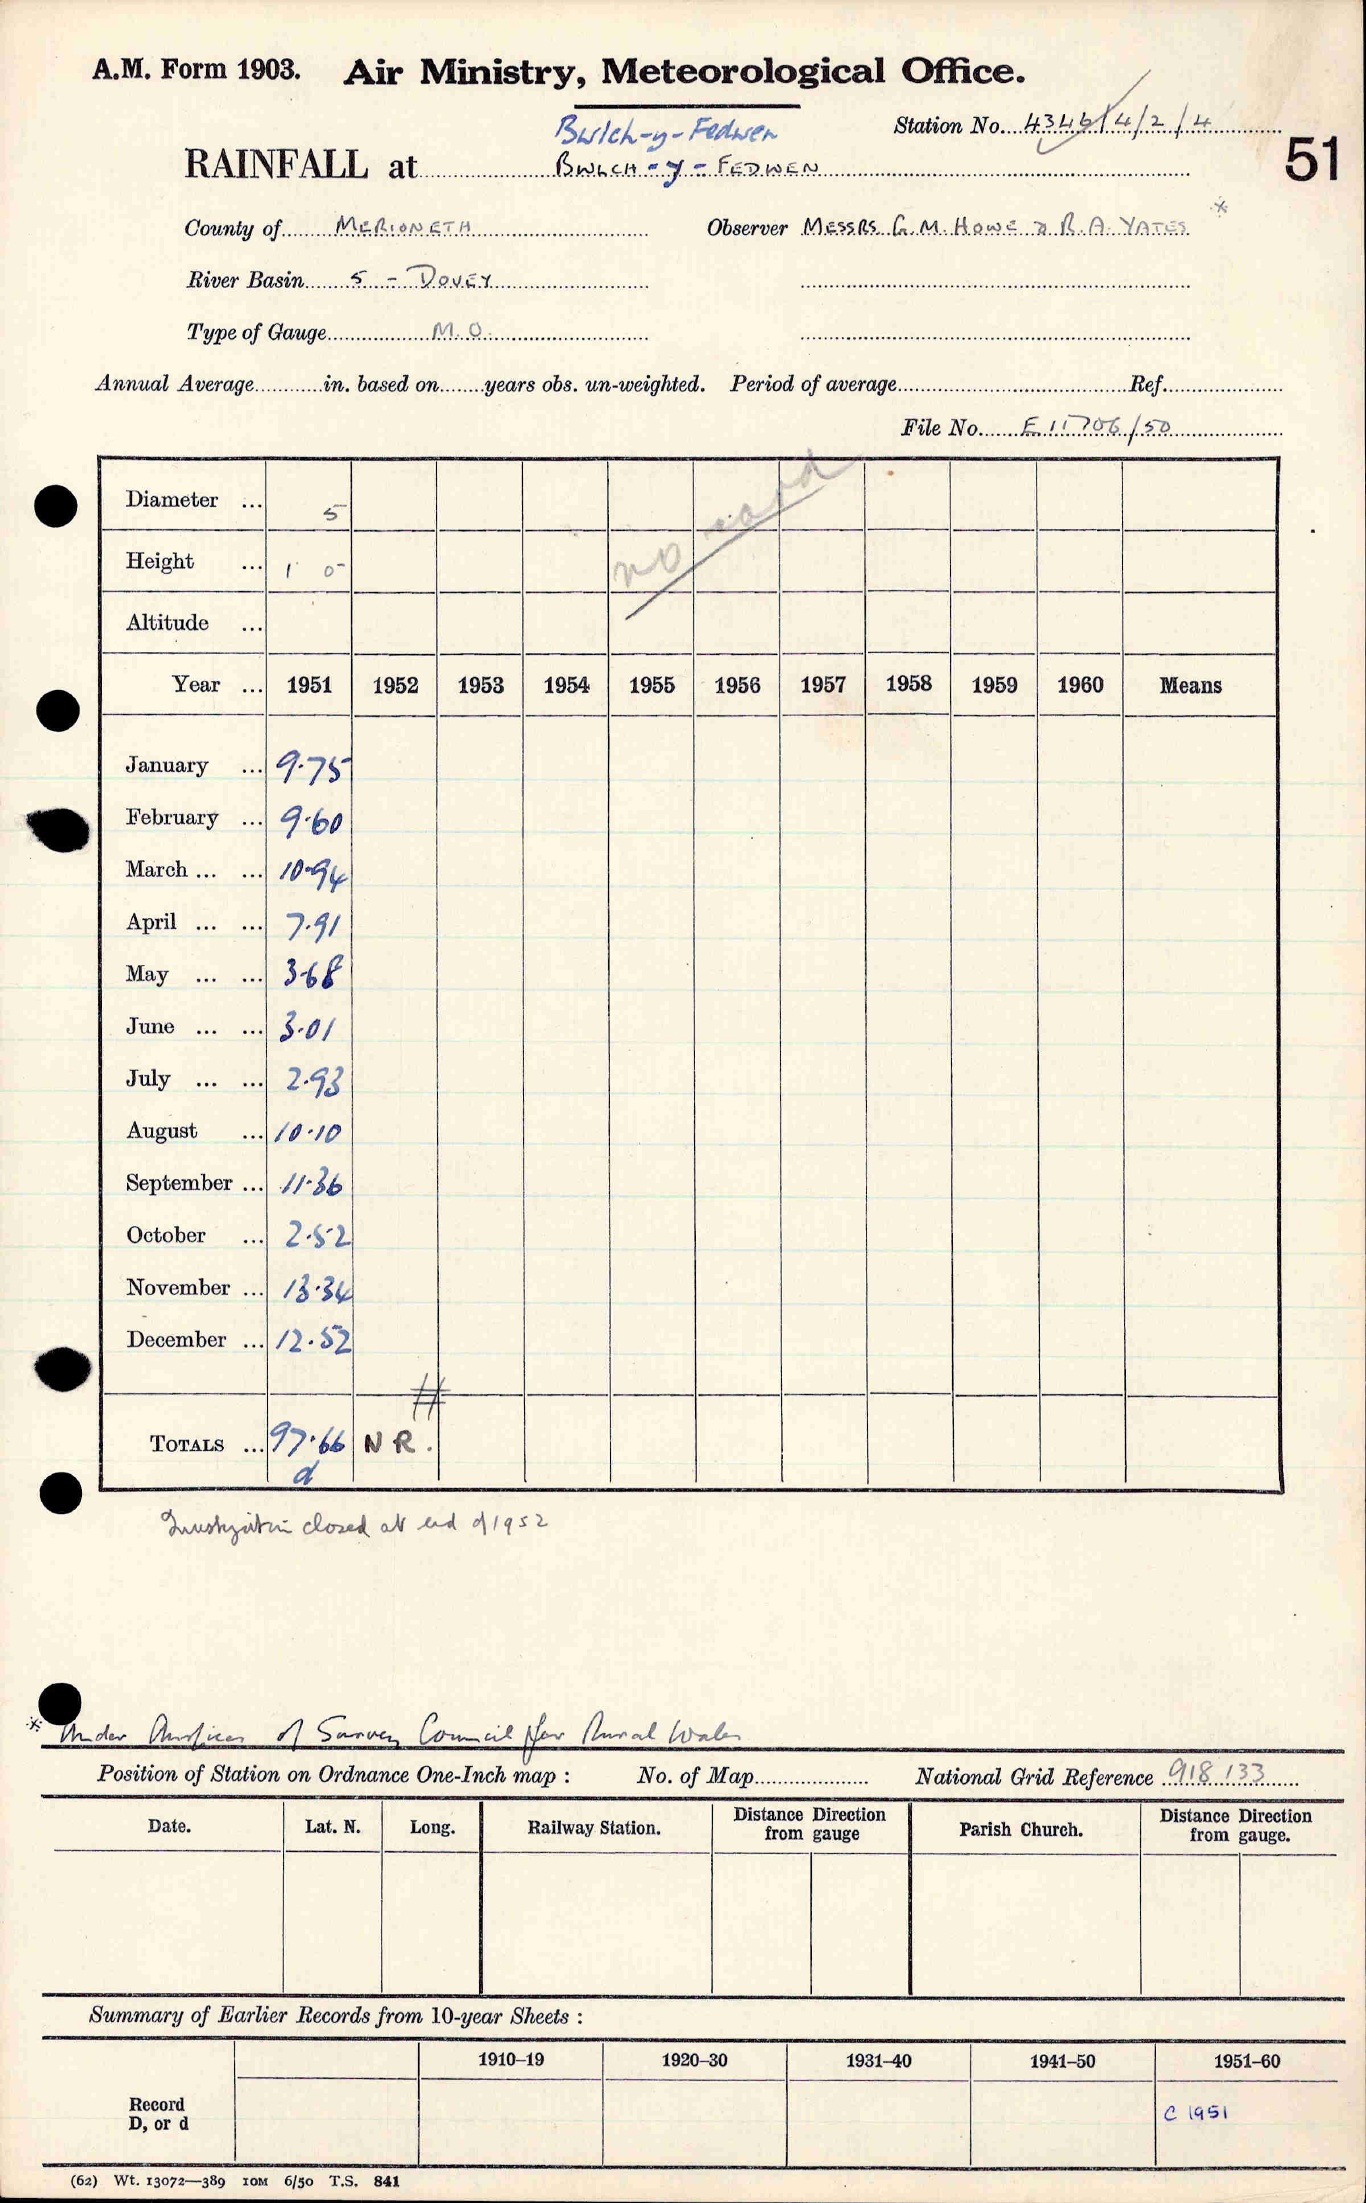 A.M. Form 1903. Air Ministry, Meteorological Office.
Station No. 4346/4/2/4
Bwlch-y-Fedwen
RAINFALL at BWLCH-y-FEDWEN
51
County of MERIONETH Observer MESSRS G.M. HOWE & R.A. YATES *
River Basin 5 - DOVEY
Type of Gauge M.O.
Annual Average in. based on years obs. un-weighted. Period of average Ref.
File No. E 11706/50
no card
Diameter ... 5
Height ... 1 0
Altitude ...
Year ... 1951 1952 1953 1954 1955 1956 1957 1958 1959 1960 Means
January ... 9.75
February ... 9.60
March ... ... 10.94
April ... ... 7.91
May ... ... 3.68
June ... ... 3.01
July ... ... 2.93
August ... 10.10
September ... 11.36
October ... 2.52
November ... 13.34
December ... 12.52
TOTALS ... 97.66 N R.
d
Investigation closed at end of 1952
* Under Auspices of Survey Council for Rural Wales
Position of Station on Ordnance One-Inch map : No. of Map National Grid Reference 918 133
Date. Lat. N. Long. Railway Station. Distance Direction from gauge Parish Church. Distance Direction from gauge.
Summary of Earlier Records from 10-year Sheets :
1910–19 1920–30 1931–40 1941–50 1951–60
Record D, or d C 1951
(62) Wt. 13072—389 10M 6/50 T.S. 841